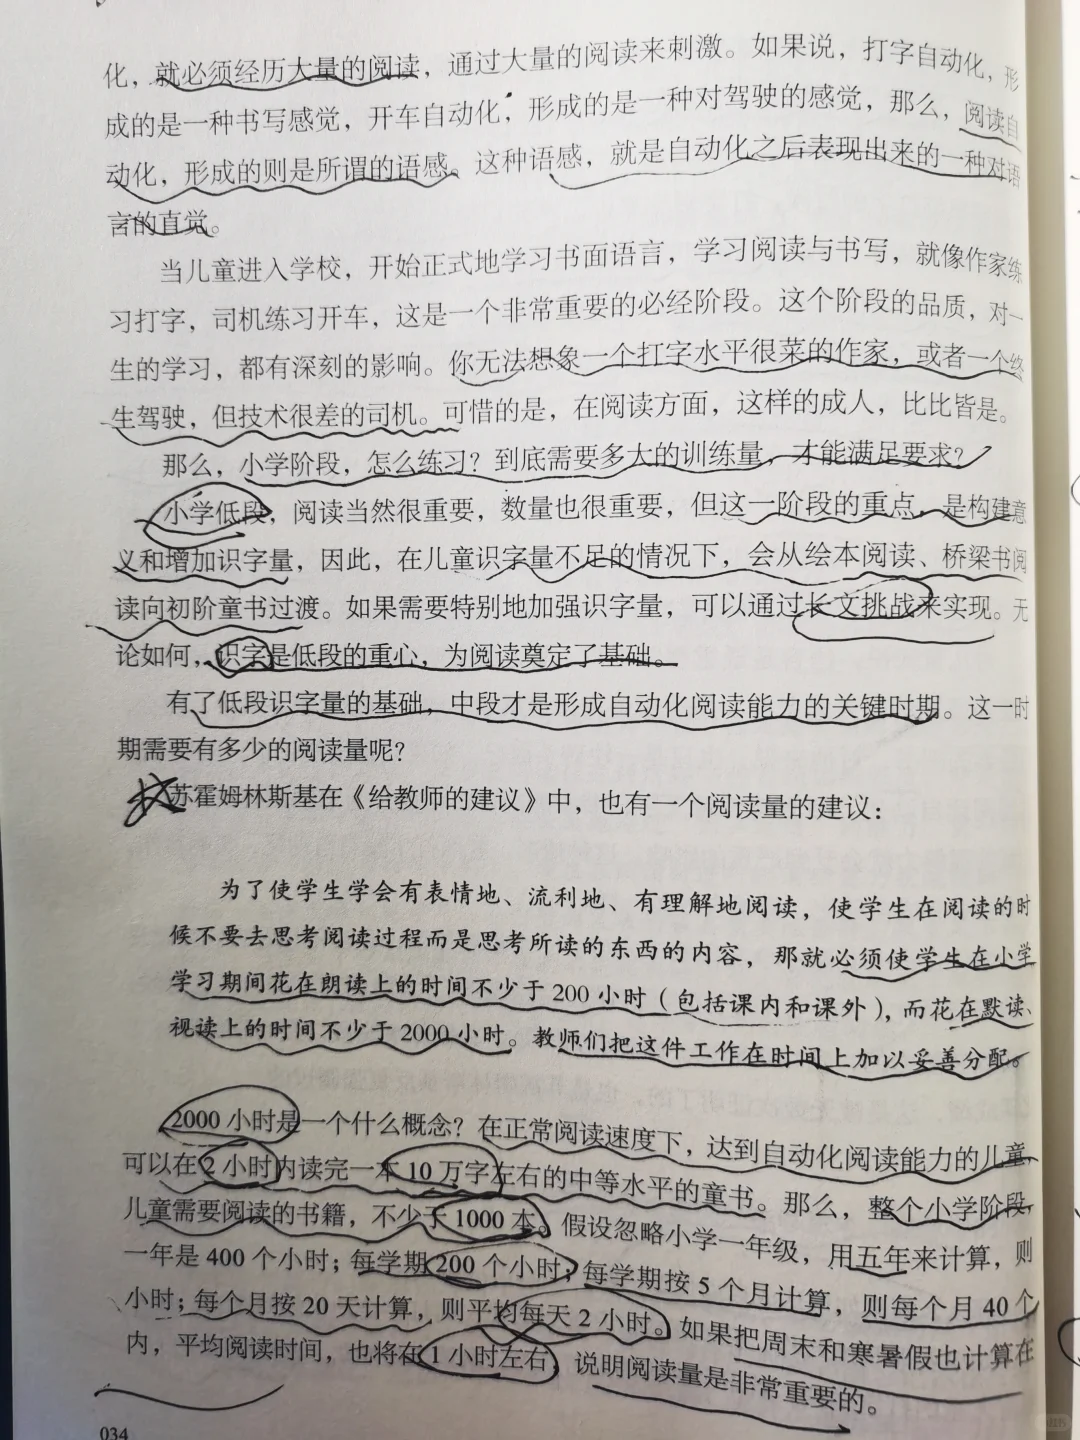 化，就必须经历大量的阅读，通过大量的阅读来刺激。如果说，打字自动化，形
成的是一种书写感觉，开车自动化，形成的是一种对驾驶的感觉，那么，阅读自
动化，形成的则是所谓的语感。这种语感，就是自动化之后表现出来的一种对语
言的直觉。
当儿童进入学校，开始正式地学习书面语言，学习阅读与书写，就像作家练
习打字，司机练习开车，这是一个非常重要的必经阶段。这个阶段的品质，对一
生的学习，都有深刻的影响。你无法想象一个打字水平很菜的作家，或者一个终
生驾驶，但技术很差的司机。可惜的是，在阅读方面，这样的成人，比比皆是。
那么，小学阶段，怎么练习？到底需要多大的训练量，才能满足要求？
小学低段，阅读当然很重要，数量也很重要，但这一阶段的重点，是构建意
义和增加识字量，因此，在儿童识字量不足的情况下，会从绘本阅读、桥梁书阅
读向初阶童书过渡。如果需要特别地加强识字量，可以通过长文挑战来实现。无
论如何，识字是低段的重心，为阅读奠定了基础。
有了低段识字量的基础，中段才是形成自动化阅读能力的关键时期。这一时
期需要有多少的阅读量呢？
苏霍姆林斯基在《给教师的建议》中，也有一个阅读量的建议：
为了使学生学会有表情地、流利地、有理解地阅读，使学生在阅读的时
候不要去思考阅读过程而是思考所读的东西的内容，那就必须使学生在小学
学习期间花在朗读上的时间不少于 200 小时（包括课内和课外），而花在默读、
视读上的时间不少于 2000 小时。教师们把这件工作在时间上加以妥善分配。
2000 小时是一个什么概念？在正常阅读速度下，达到自动化阅读能力的儿童，
可以在 2 小时内读完一本 10 万字左右的中等水平的童书。那么，整个小学阶段，
儿童需要阅读的书籍，不少于 1000 本。假设忽略小学一年级，用五年来计算，则
一年是 400 个小时；每学期 200 个小时；每学期按 5 个月计算，则每个月 40 个
小时；每个月按 20 天计算，则平均每天 2 小时。如果把周末和寒暑假也计算在
内，平均阅读时间，也将在 1 小时左右，说明阅读量是非常重要的。
034